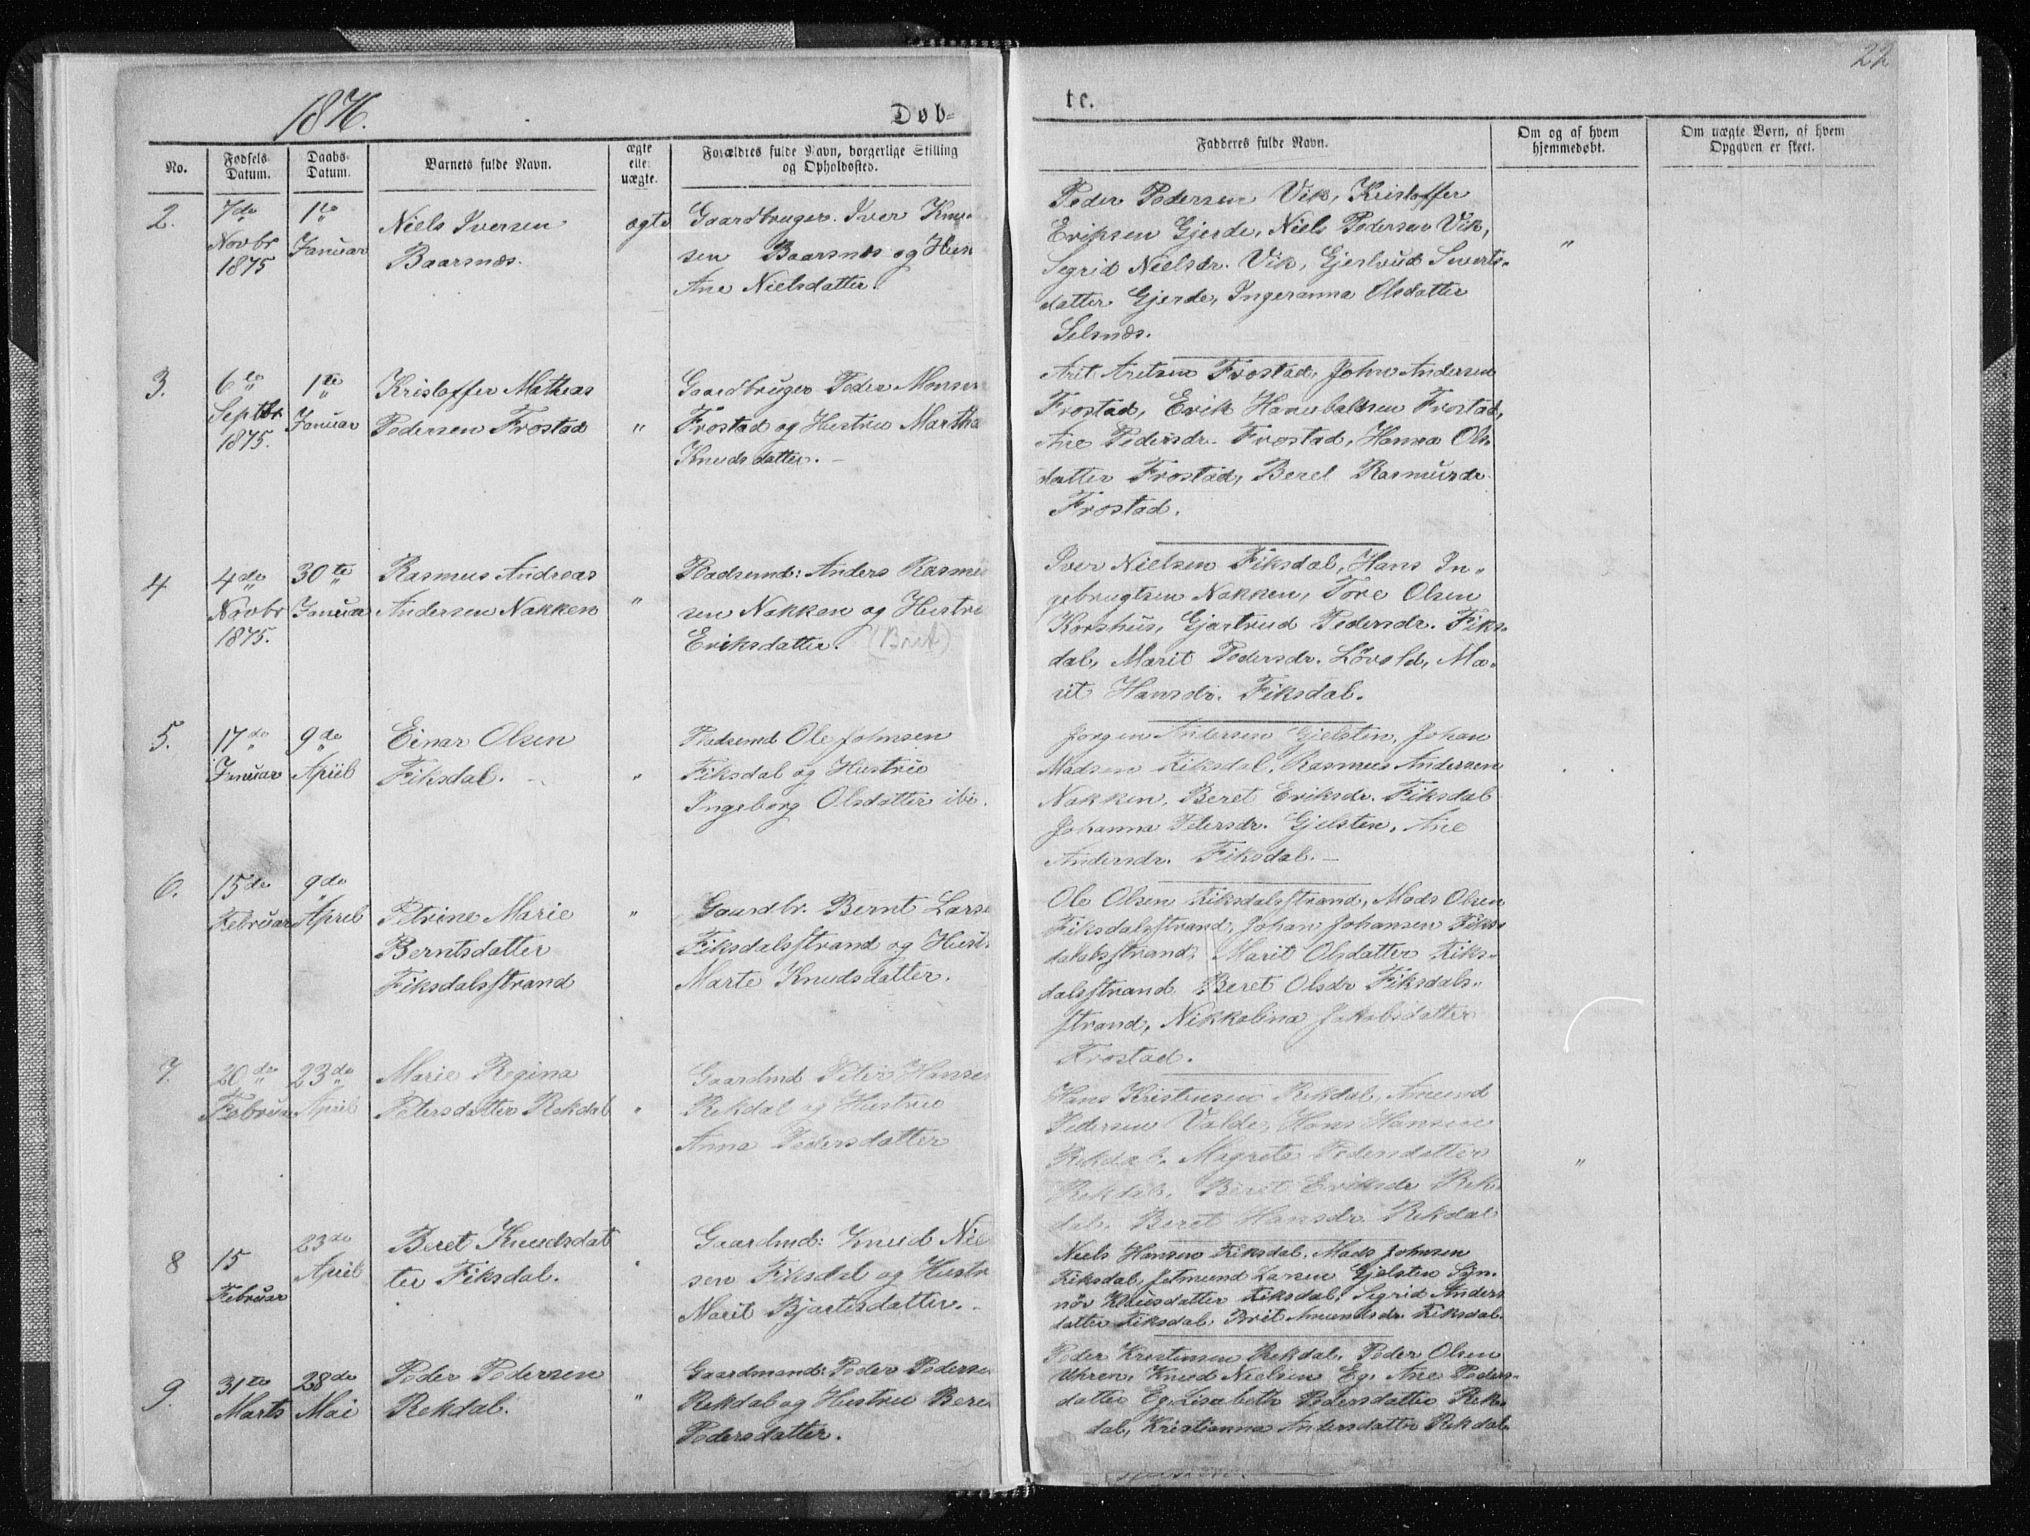 22
1876.
Døb-
te.
No.
Fødsels Datum.
Daabs Datum.
Barnets fulde Navn.
ægte eller uægte.
Forældres fulde Navn, borgerlige Stilling
og Opholdssted.
Fadderes fulde Navn.
Om og af hvem
hjemmedøbt.
Om uægte Børn, af hvem
Opgaven er skeet.
2.
7de
Novbr
1875
1te
Januar
Niels Iversen
Baarsnæs.
ægte
Gaardbruger. Iver Knu-
sen Baarsnæs og Hust
Ane Nielsdatter.
Peder Pedersen Vik, Kristoffer
Eriksen Gjerde, Niels Pedersen Vik,
Segrid Nielsdr. Vik, Gjertrud Siverts-
datter Gjerde, Ingeranna Olsdatter
Selsnæs.
"
3.
6te
Septbr
1875.
1te
Januar
Kristoffer Mathias
Pedersen Frostad
"
Gaardbruger Peder Monsen
Frostad og Hustru Martha
Knudsdatter. –
Arit Aretsen Frostad, John Andersen
Frostad, Erik Hanibalsen Frostad,
Ane Pedersdr. Frostad, Hanna Ols-
datter Frostad, Beret Rasmusdr
Frostad.
4
4de
Novbr
1875.
30te
Januar
Rasmus Andreas
Andersen Nakken
"
Pladsmd: Anders Rasmu
sen Nakken og Hustru
Eriksdatter. (Brit)
Iver Nielsen Fiksdal, Hans In-
gebrugtsen Nakken, Tore Olsen
Korshus, Gjertrud Pedersdr. Fiks-
dal, Marit Pedersdr. Lövold, Ma-
rit Hansdr. Fiksdal.
5.
17de
Januar
9de
April
Einar Olsen
Fiksdal.
"
Pladsmd Ole Johnsen
Fiksdal og Hustru
Ingeborg Olsdatter ibi.
Jorgen Andersen Gjelsten, Johan
Madsen Fiksdal, Rasmus Andersen
Nakken, Beret Eriksdr. Fiksdal
Johanna Petersdr. Gjelsten, Ane
Andersdr. Fiksdal. –
6.
15de
Februar
9de
April
Petrine Marie
Berntsdatter
Fiksdalsstrand
"
Gaardbr. Bernt Larse
Fiksdalsstrand og Hust
Marte Knudsdatter.
Ole Olsen Fiksdalsstrand, Mads Olsen
Fiksdalsstrand, Johan Johansen Fiks-
dalsstrand, Marit Olsdatter Fiks-
dalsstrand Beret Olsdr Fiksdals-
strand, Nikkolina Jakobsdatter
Frostad.
7.
20de
Februar
23de
April
Marie Regina
Petersdatter Rekdal
"
Gaardmd Peter Hansen
Rekdal og Hustru
Anna Pedersdatter
Hans Kristensen Rekdal, Amund
Pedersen Valde, Hans Hansen
Rekdal, Magrete Pedersdatter
Rekdal, Beret Eriksdr Rek-
dal, Beret Hansdr Rekdal
"
8
15
Februar
23de
April
Beret Knudsdat
ter Fiksdal.
Gaardmd: Knud Niel
sen Fiksdal og Hustr
Marit Bjartesdatter. –
Niels Hansen Fiksdal, Mads Johnsen
Fiksdal, Jetmund Larsen Gjelsten Syn-
növ Knusdatter Fiksdal, Segrid Anders
datter Fiksdal, Brit Amundsdr Fiksdal.
9.
31te
Marts
28de
Mai
Peder Pedersen
Rekdal.
"
Gaardmand: Peder Pederse
Rekdal og Hustru Bere
Pedersdatter.
Peder Kristensen Rekdal, Peder Olsen
Uhren, Knud Nielsen Eg, Ane Peders-
datter Eg, Lisabeth Pedersdatter Rek-
dal, Kristianna Andersdatter Rekdal